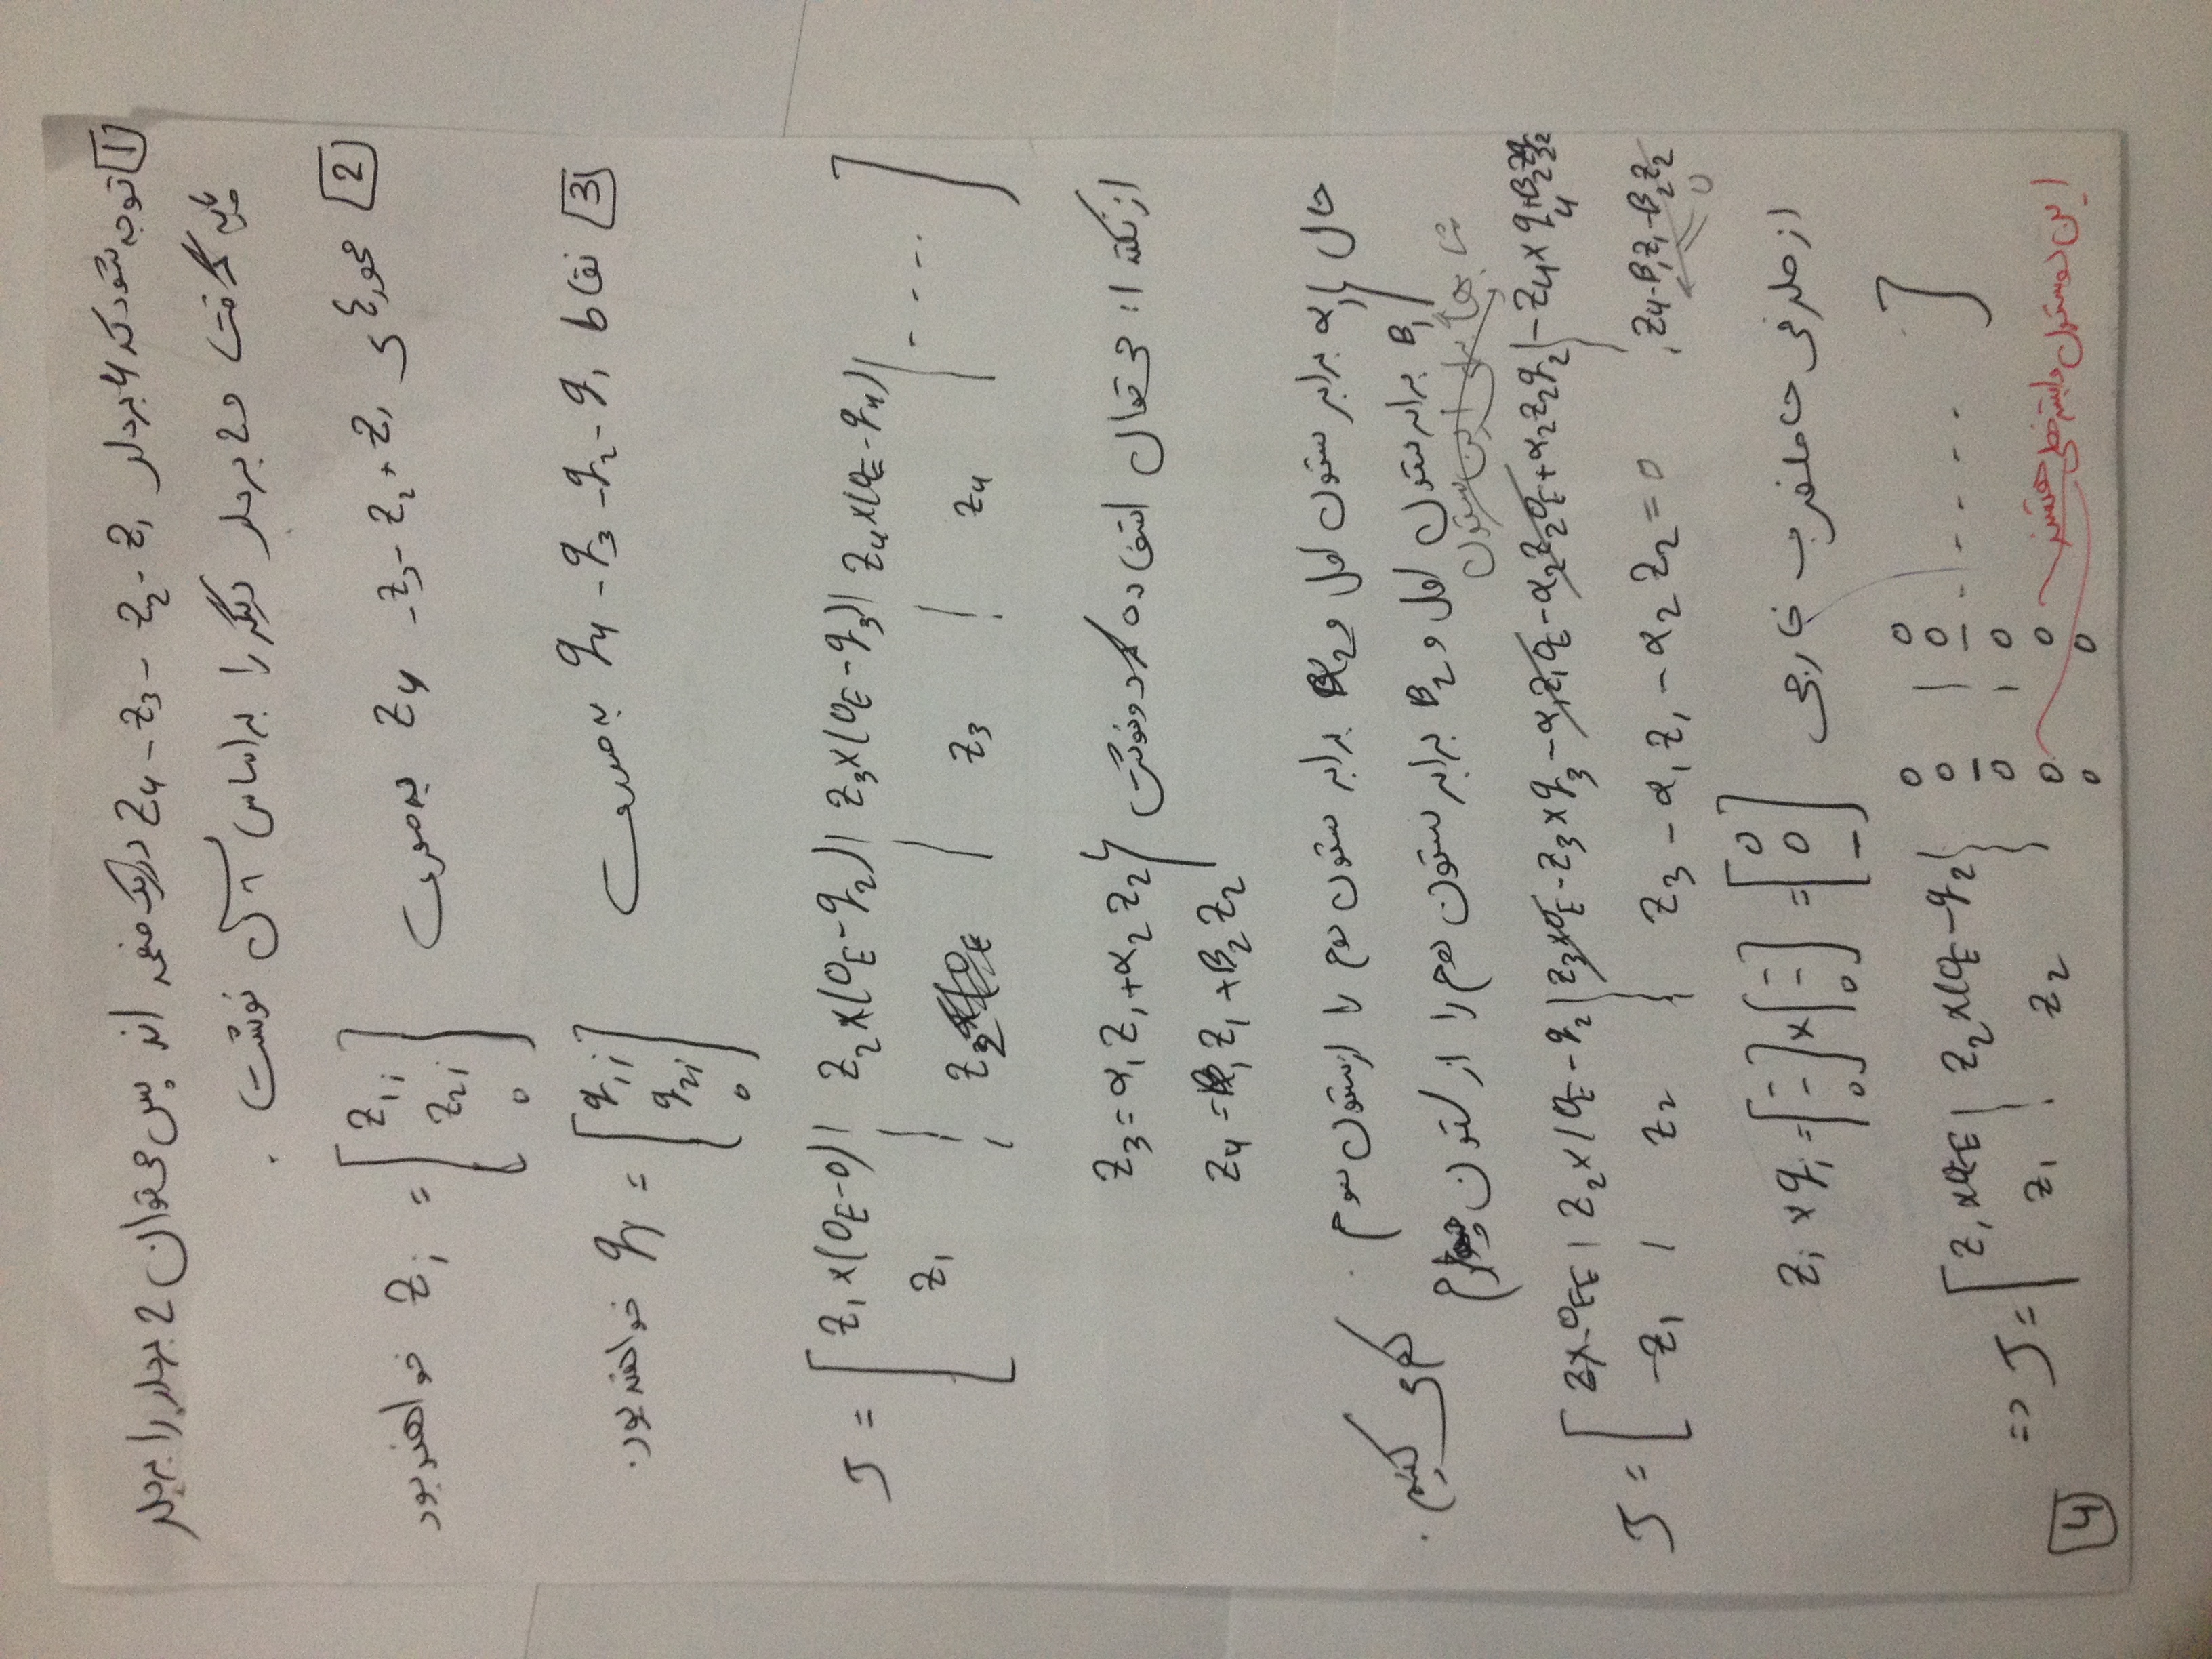 1 توجه شود که 4 بردار Z₁ - Z₂ - Z₃ - Z₄ در یک صفحه اند پس می توان 2 بردار را بردار
پایه گرفت و 2 بردار دیگر را براساس آن نوشت .
2 محورهای Z₁ - Z₂ - Z₃ - Z₄ به صورت Zᵢ = [Z₁ᵢ Z₂ᵢ 0] خواهند بود
3 نقاط q₁ - q₂ - q₃ - q₄ به صورت qᵢ = [q₁ᵢ q₂ᵢ 0] خواهند بود.
J = [ Z₁×(O_E-0) | Z₂×(O_E-q₂) | Z₃×(O_E-q₃) | Z₄×(O_E-q₄) | ....
Z₁ | Z₂ | Z₃ | Z₄ ]
از نکته 1: می توان استفاده کرد و نوشت Z₃ = α₁Z₁ + α₂Z₂
Z₄ = β₁Z₁ + β₂Z₂
حال α₁ برابر ستون اول و α₂ برابر ستون دوم را از ستون سوم
β₁ برابر ستون اول و β₂ برابر ستون دوم را از ستون چهارم کم می کنیم .
برای این ستون
J = [ Z×O_E | Z₂×(O_E-q₂ | Z₃×O_E - Z₃×q₃ - α₁Z₁O_E - α₂Z₂O_E + α₂Z₂q₂ | -Z₄×q₄+β₂Z₂q₂
-Z₁ | Z₂ | Z₃ - α₁Z₁ - α₂Z₂ = 0 | Z₄-β₁Z₁-β₂Z₂
0
از طرفی حاصلضرب خارجی Zᵢ × qᵢ = [- - 0] × [- - 0] = [0 0 -]
⇒ J = [ Z₁×O_E | Z₂×(O_E-q₂ | 0 0 - 0 0 0 | 0 0 - 0 0 0 ..... ]
Z₁ | Z₂
این دو ستون وابسته خطی هستند
4